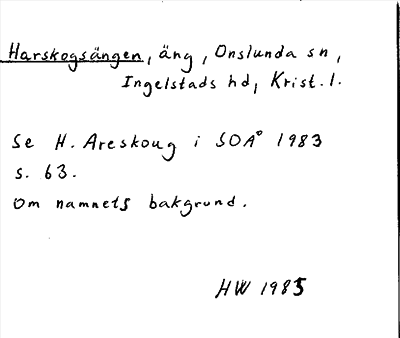 Harskogsängen, äng, Onslunda sn,
Ingelstads hd, Krist. l.
Se H. Areskoug i SOÅ 1983
s. 63.
Om namnets bakgrund.
HW 1985